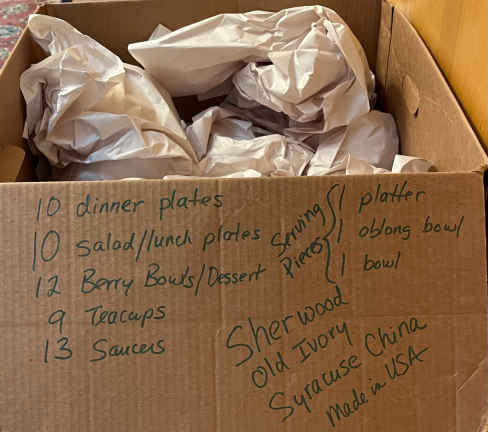 10 dinner plates
10 salad/lunch plates
12 Berry Bowls/Dessert
9 Teacups
13 Saucers
Serving Pieces
1 platter
1 oblong bowl
1 bowl
Sherwood
Old Ivory
Syracuse China
Made in USA